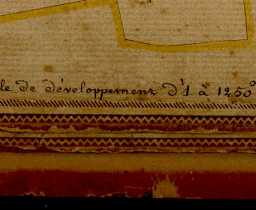 le de développement d'1 à 1250°